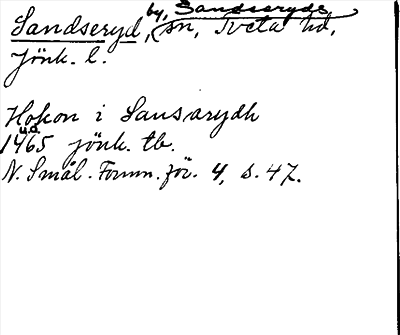 by, Sandseryds
Sandseryd, sn, Tveta hd,
Jönk. l.
Hokon i Sansarydh
u.å.
1465 jönk. tb.
N. Smål. Fornm. för. 4, s. 47.